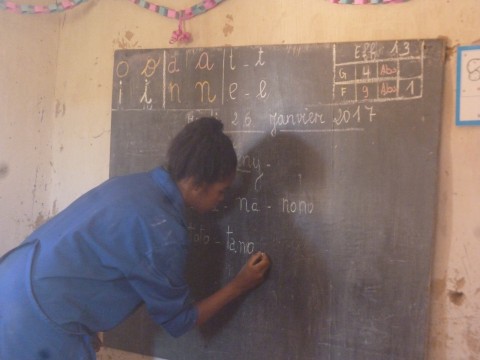 o o d a i - t
i i n n e - e
Eff 13
G 4 Abs
F 9 Abs 1
26 janvier 2017
ny -
- na - nono
toto - tano